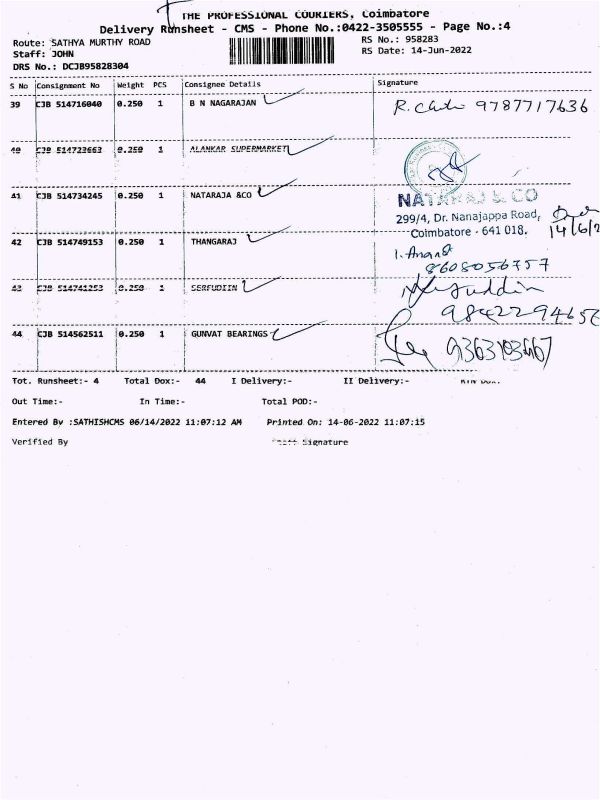 THE PROFESSIONAL COURIERS, Coimbatore
Delivery Runsheet - CMS - Phone No.:0422-3505555 - Page No.:4
Route: SATHYA MURTHY ROAD
RS No.: 958283
Staff: JOHN
RS Date: 14-Jun-2022
DRS No.: DCJB95828304
S No Consignment No Weight PCS Consignee Details Signature
39 CJB 514716040 0.250 1 B N NAGARAJAN 9787717636
40 CJB 514723663 0.250 1 ALANKAR SUPERMARKET
41 CJB 514734245 0.250 1 NATARAJA &CO
NATARAJ & CO
299/4, Dr. Nanajappa Road,
Coimbatore - 641 018.
14/6/2
42 CJB 514749153 0.250 1 THANGARAJ
8608056757
43 CJB 514741253 0.250 1 SERFUDIIN
44 CJB 514562511 0.250 1 GUNVAT BEARINGS
Tot. Runsheet:- 4 Total Dox:- 44 I Delivery:- II Delivery:-
Out Time:- In Time:- Total POD:-
Entered By :SATHISHCMS 06/14/2022 11:07:12 AM Printed On: 14-06-2022 11:07:15
Verified By Signature